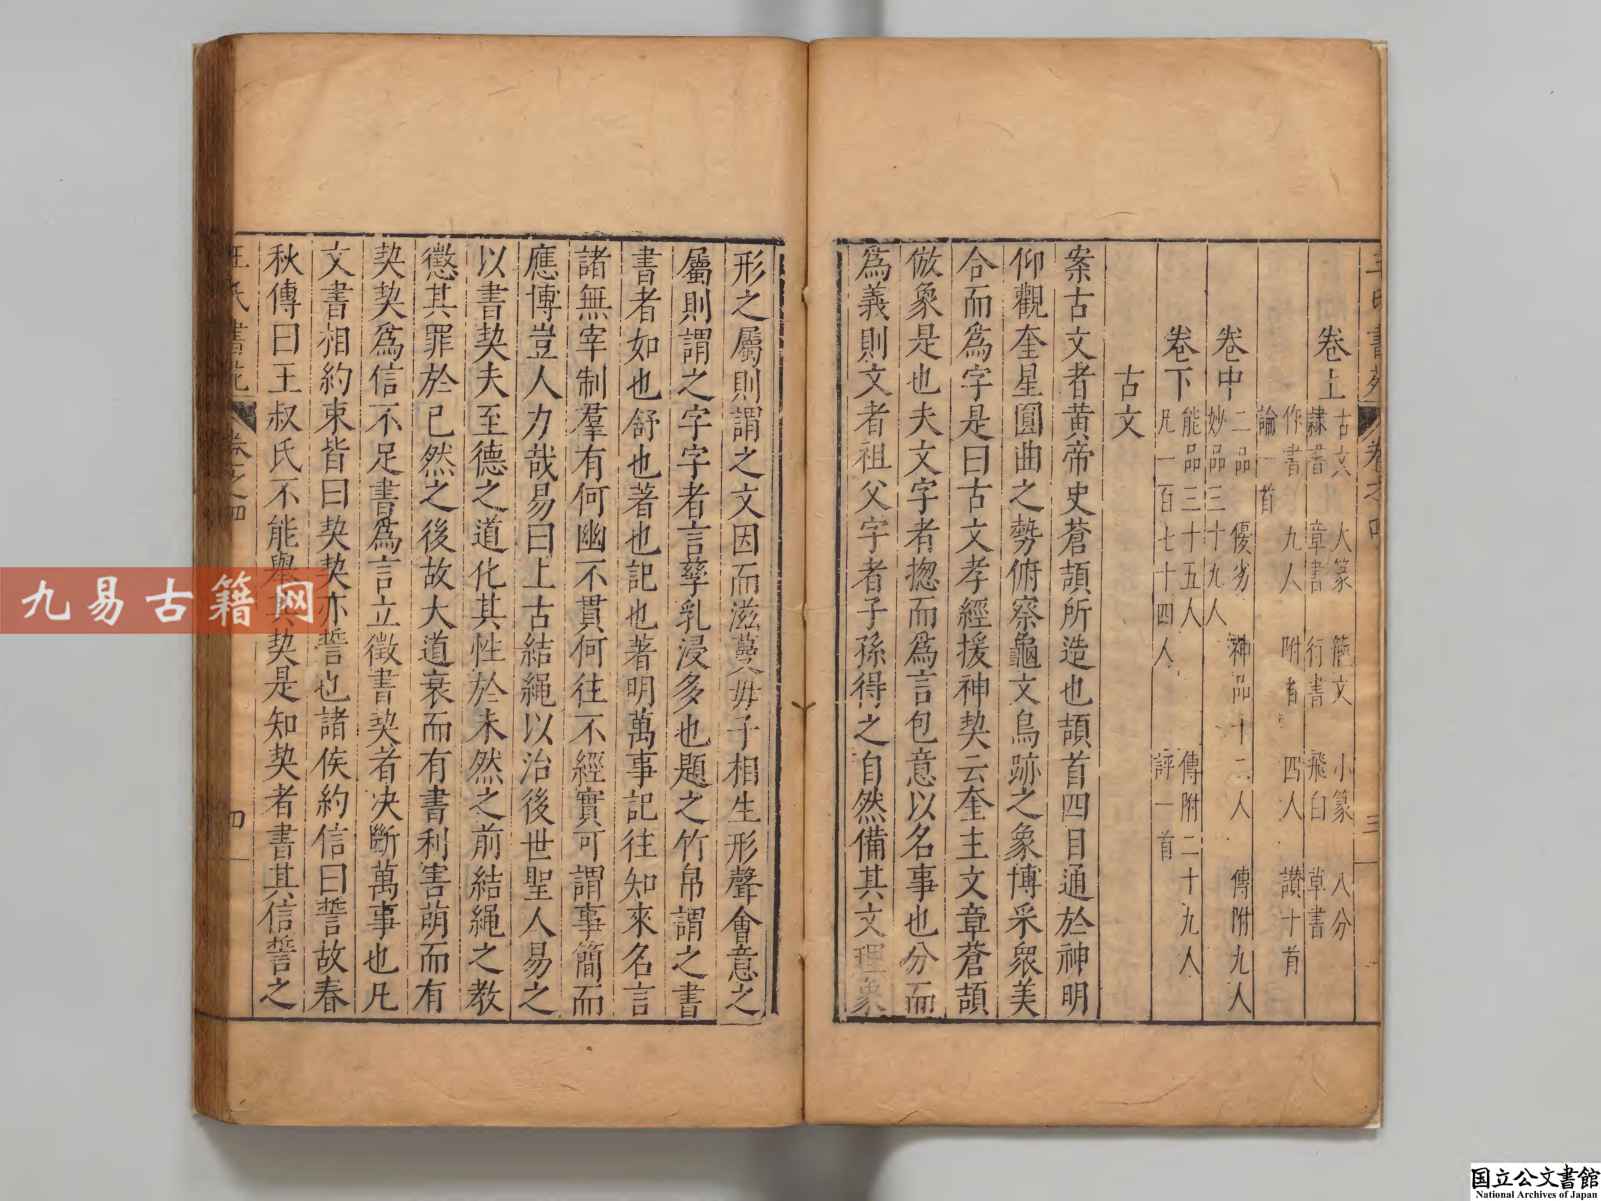 王氏書苑 卷之四 三
卷上 古文 大篆 籒文 小篆 八分
隷書 章書 行書 飛白 草書
作書 九人 附者 四人 讃十首
論一首
卷中 二品 優劣 神品十二人 傳附九人
妙品三十九人
卷下 能品三十五人 傳附二十九人
凡一百七十四人 評一首
古文
案古文者黄帝史蒼頡所造也頡首四目通於神明
仰觀奎星圓曲之勢俯察龜文鳥跡之象博采衆美
合而爲字是曰古文孝經援神契云奎主文章蒼頡
倣象是也夫文字者揔而爲言包意以名事也分而
爲義則文者祖父字者子孫得之自然備其文理象
形之屬則謂之文因而滋蔓毋子相生形聲會意之
屬則謂之字字者言孳乳浸多也題之竹帛謂之書
書者如也舒也著也記也著明萬事記往知來名言
諸無宰制羣有何幽不貫何往不經實可謂事簡而
應博豈人力哉易曰上古結繩以治後世聖人易之
以書契夫至德之道化其性於未然之前結繩之教
懲其罪於已然之後故大道衰而有書利害萌而有
契契爲信不足書爲言立徵書契者决斷萬事也凡
文書相約束皆曰契契亦誓也諸侯約信曰誓故春
秋傳曰王叔氏不能舉其契是知契者書其信誓之
王氏書苑 卷之四 四
九易古籍网
国立公文書館
National Archives of Japan